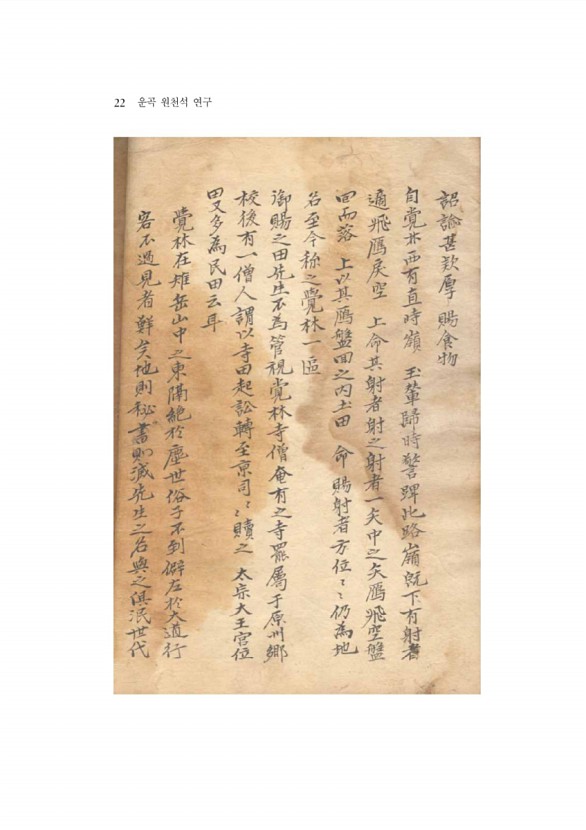 22 운곡 원천석 연구
詔諭甚欵厚 賜食物
自覺林西有直時嶺 玉輦歸時警蹕此路嶺旣下有射者
適飛鴈戾空 上命其射者射之射者一矢中之矢鴈飛空盤
回而落 上以其鴈盤回之內土田 命賜射者方位〻〻仍為地
名至今称之覺林一區
御賜之田先生不為管視覺林寺僧奄有之寺罷屬于原州鄉
校後有一僧人謂以寺田起訟轉至京司〻〻贖之 太宗大王宮位
田又多為民田云耳
覺林在雉岳山中之東隔絶於塵世俗子不到僻左於大道行
客不過見者鮮矣地則秘書則滅先生之名與之俱泯世代